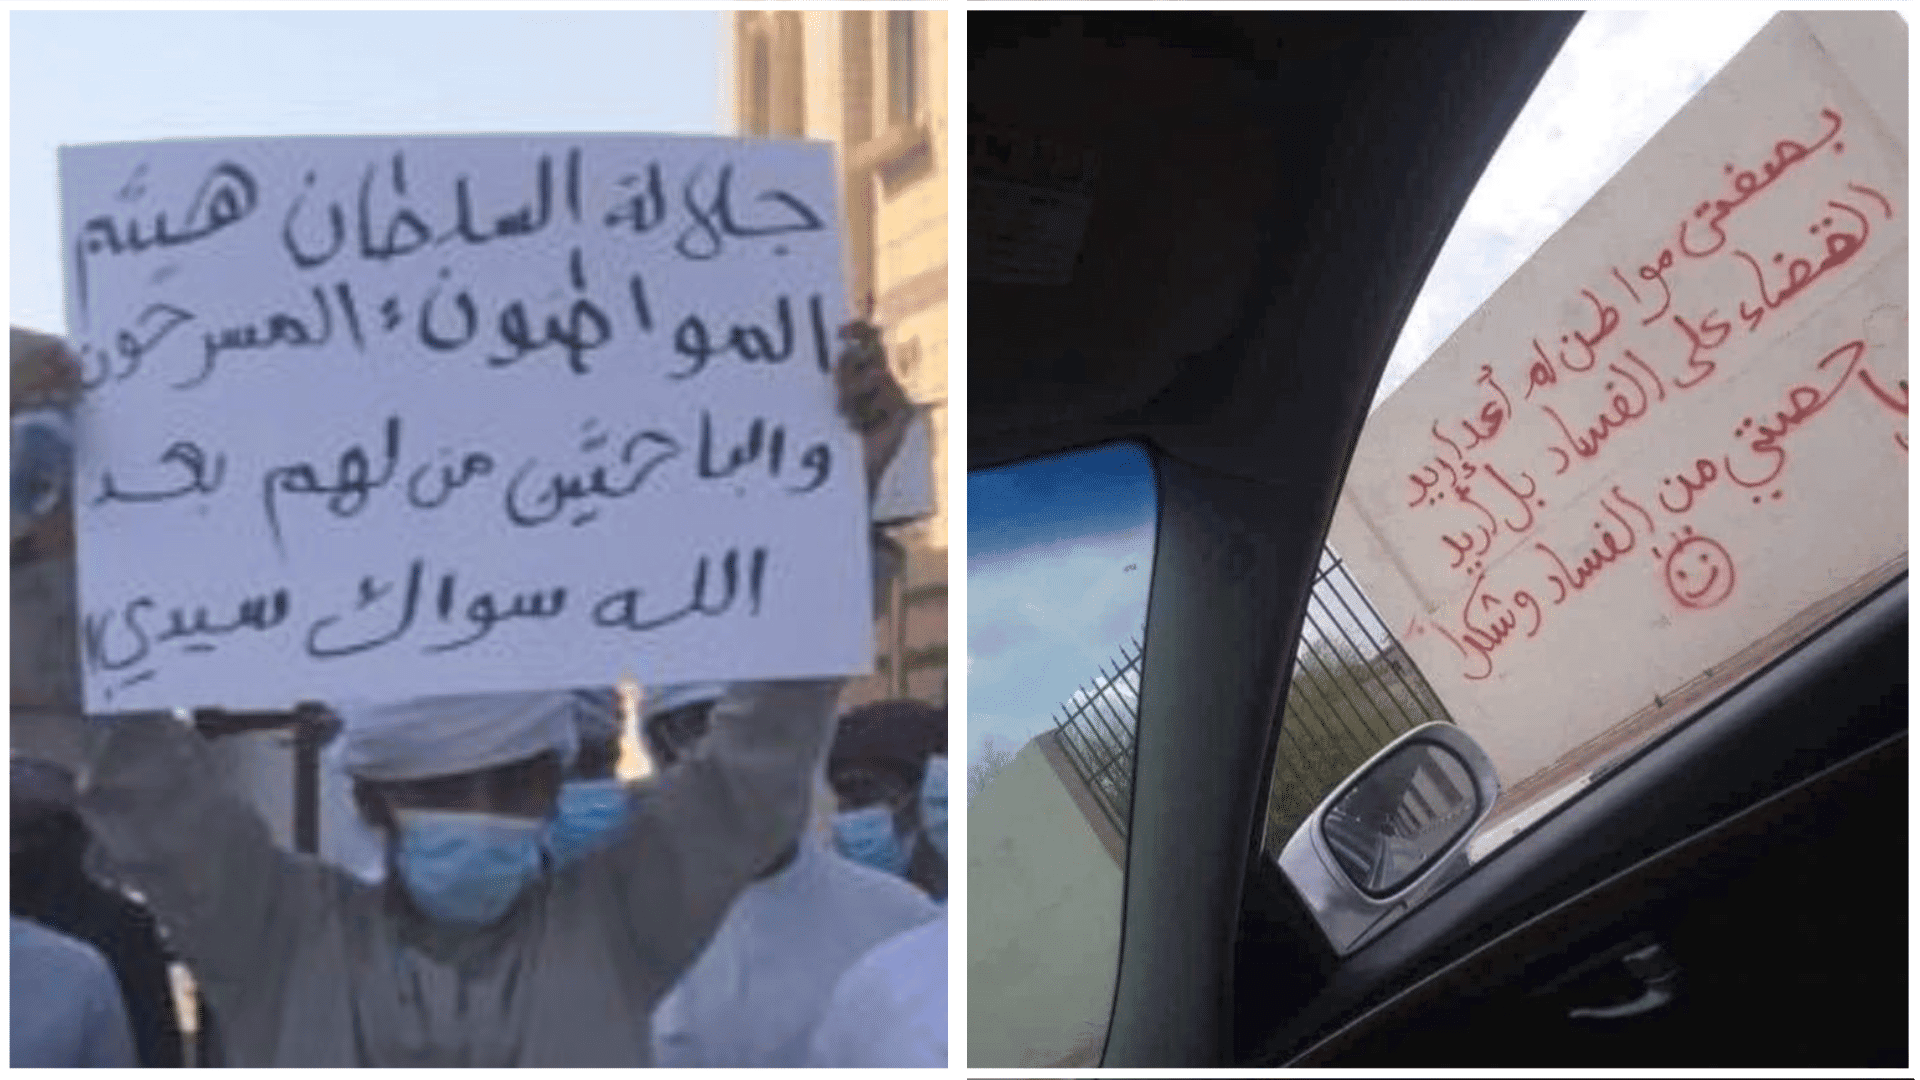 جلالة السلطان هيثم
المواطنون، المسرحون
والباحثين من لهم بعد
الله سواك سيدي
بصفتي مواطن لم أعد أريد
القضاء على الفساد بل أريد
حصتي من الفساد وشكراً